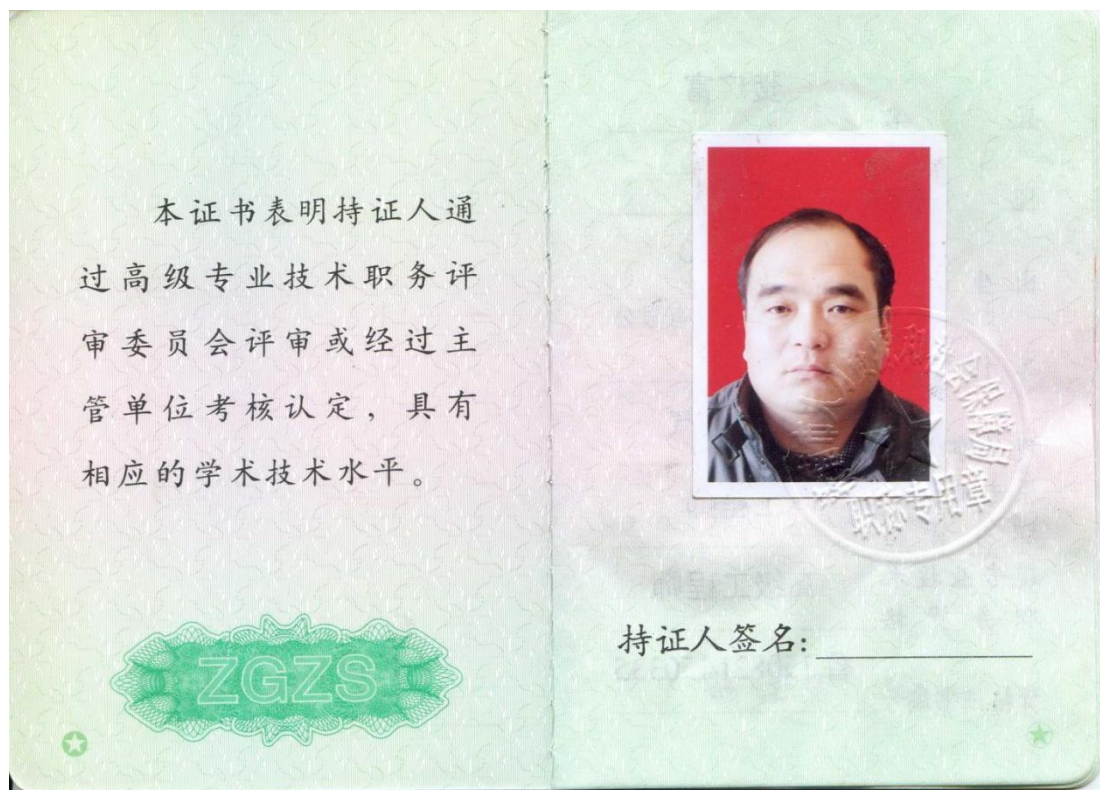 本证书表明持证人通
过高级专业技术职务评
审委员会评审或经过主
管单位考核认定，具有
相应的学术技术水平。
ZGZS
社会保障局
专用章
持证人签名：